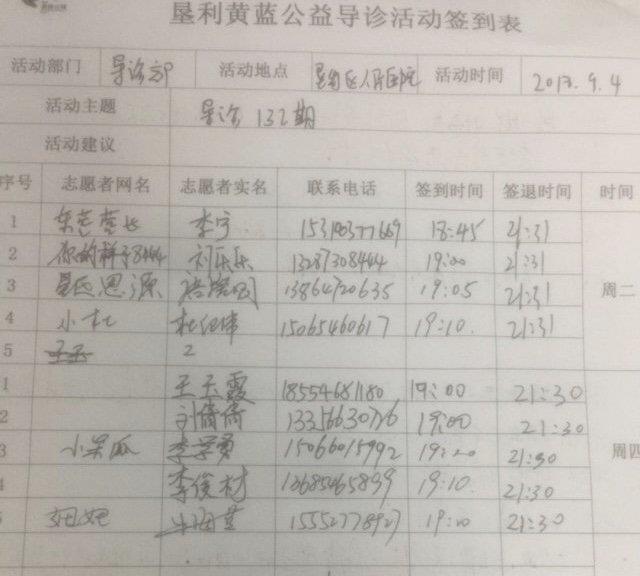 垦利黄蓝公益导诊活动签到表
活动部门 导诊部 活动地点 垦利区人民医院 活动时间 2018.9.4
活动主题 导诊132期
活动建议
序号 志愿者网名 志愿者实名 联系电话 签到时间 签退时间 时间
1 李宁 18:45 21:31
2 你的样子8444 刘乐乐 13287308444 19:00 21:31
3 垦区思源 13864720635 19:05 21:31 周二
4 小杜 15065460617 19:10 21:31
5
1 王玉霞 18554681180 19:00 21:30
2 刘倩倩 19:00 21:30
3 小呆瓜 15066015992 21:30 周四
4 李俊村 13685465839 19:10 21:30
5 妞妞 15552778927 21:30